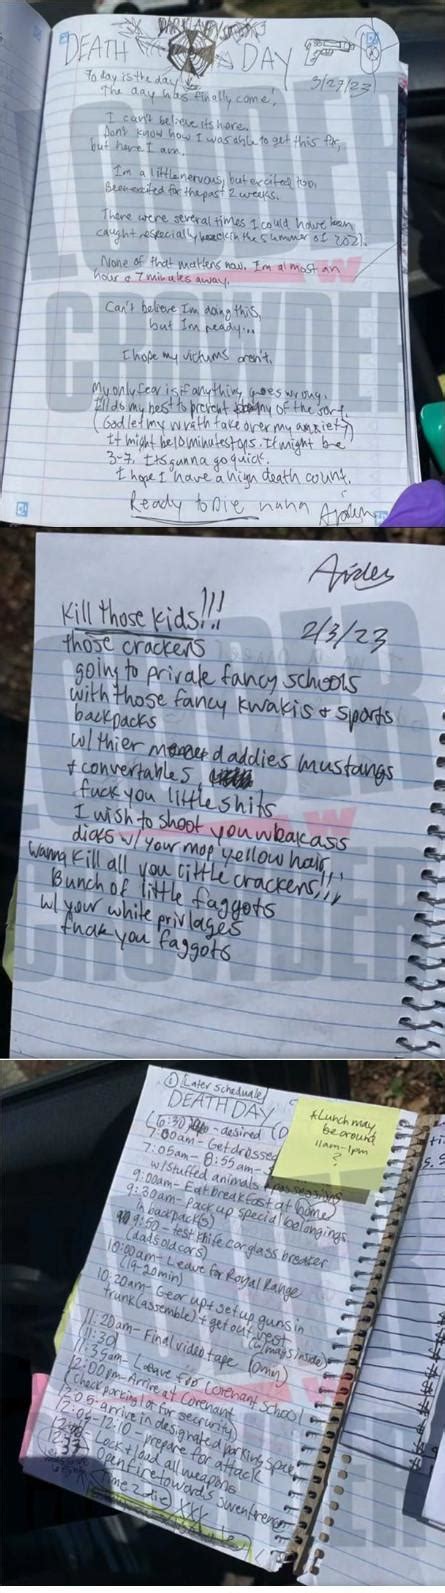 DEATH DAY
DARK ABYSS
3/27/23
Today is the day
The day has finally come!
I can't believe its here.
Dont know how I was able to get this far,
but here I am.
I'm a little nervous, but excited too.
Been excited for the past 2 weeks.
There were several times I could have been
caught especially back in the summer of 2021.
None of that matters now. I'm almost an
hour & 7 minutes away.
Can't believe I'm doing this,
but I'm ready...
I hope my victums arent.
My only fear is if anything goes wrong.
I'll do my best to prevent any of the sort.
(God let my wrath take over my anxiety)
It might be 10 minutes tops. It might be
3-7. Its gunna go quick.
I hope I have a high death count.
Ready to Die haha Aiden
LOUDER
W
CROWDER
Aiden
2/3/23
Kill those kids!!!
those crackers
going to private fancy schools
with those fancy kwakis & sports
backpacks
w/ thier daddies mustangs
& convertables
fuck you little shits
I wish to shoot you weakass
dicks w/ your mop yellow hair
wanna Kill all you little crackers!!!
Bunch of little faggots
w/ your white privlages
fuck you faggots
LOUDER
W
CROWDER
Later scheduale
DEATH DAY
6:30 - desired
7:00am - Get dressed
7:05am - 8:55am -
w/ stuffed animals
9:00am - Eat breakfast at home
9:30am - Pack up special belongings
(in backpacks)
9:50 - test knife car glass breaker
(dads old cars)
10:00am - Leave for Royal Range
(19-20min)
10:20am - Gear up + set up guns in
trunk (assemble) + get out vest
(mags inside)
11:20am - Final video tape (10min)
(11:30)
11:35am - Leave for Covenant School
12:00pm - Arrive at Covenant
(check parking lot for security)
12:05 - arrive in designated parking space
12:05-12:10 - prepare for attack
Lock + load all weapons
12:33
Open fire towards
Time 2 die XXX
*Lunch may
be around
11am-1pm
?